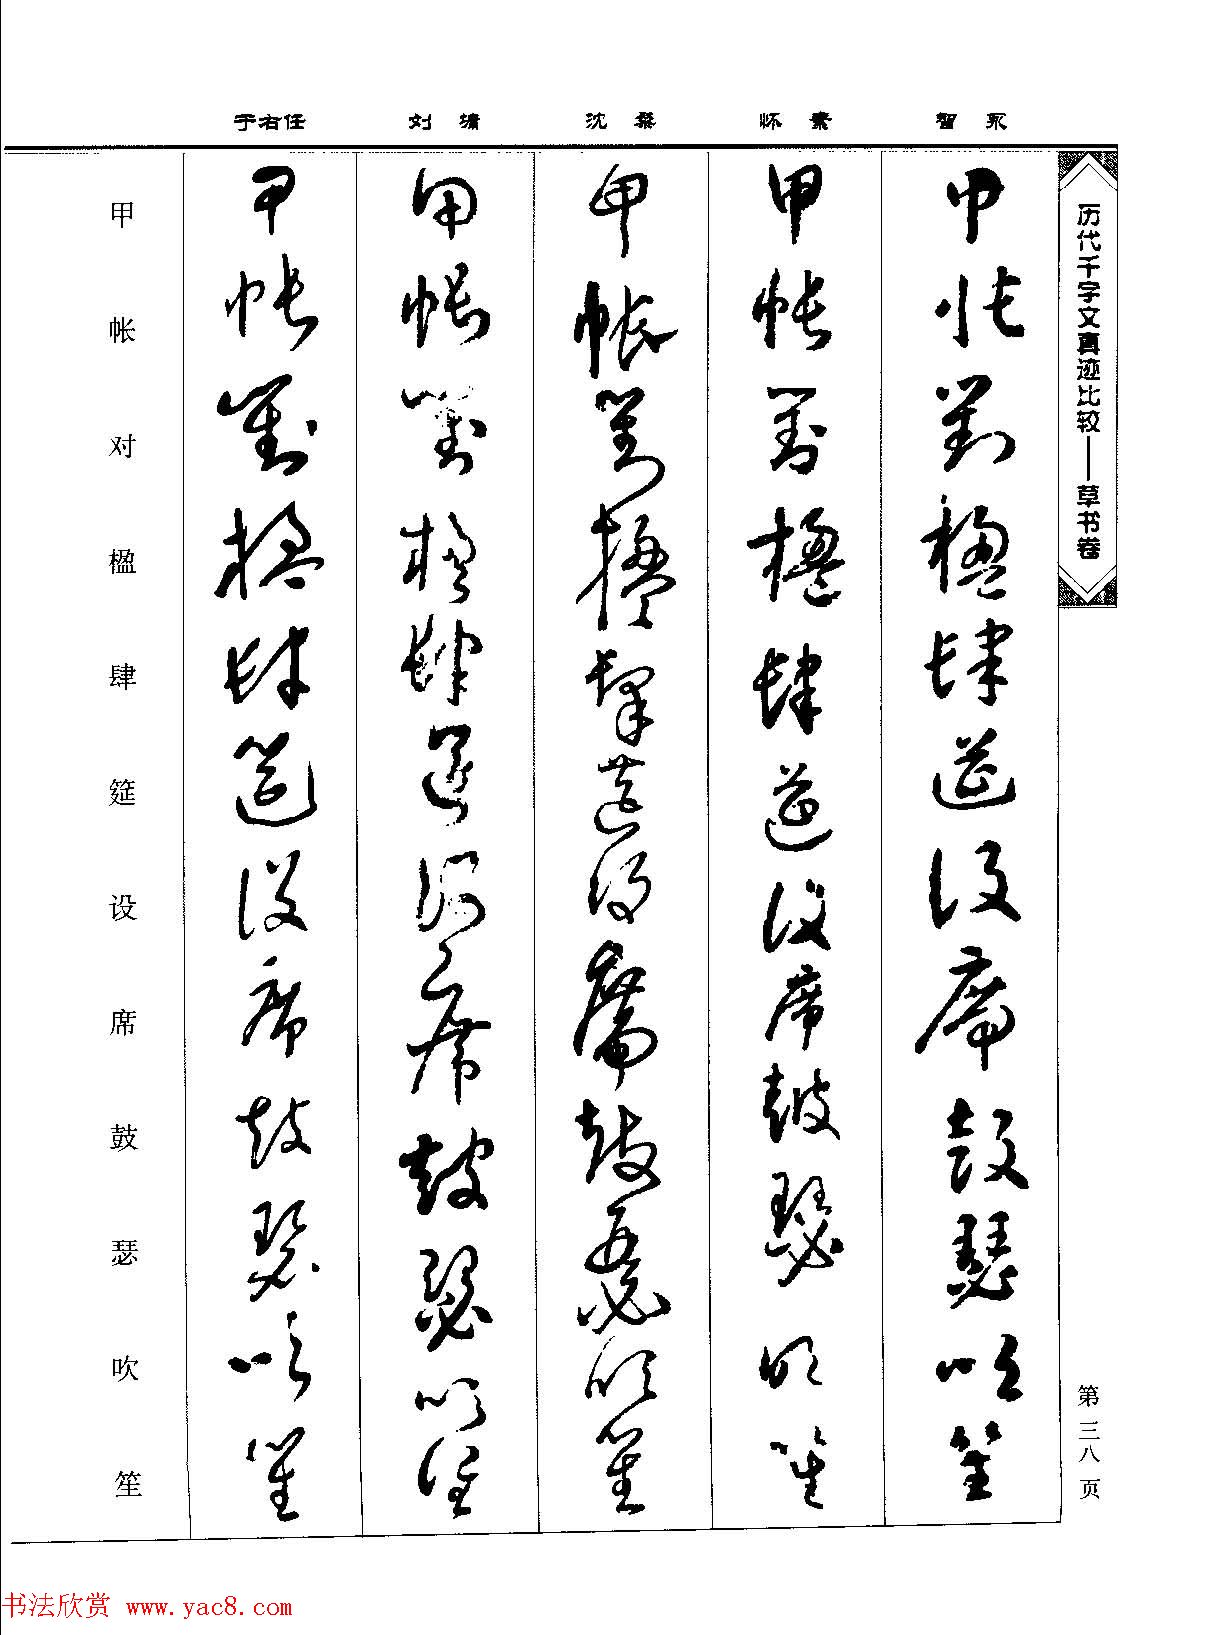 历代千字文真迹比较——草书卷
第三八页
智永
甲帳對楹肆筵設席鼓瑟吹笙
怀素
甲帳對楹肆筵設席鼓瑟吹笙
沈粲
甲帳對楹肆筵設席鼓瑟吹笙
刘
甲帳對楹肆筵設席鼓瑟吹笙
于右任
甲帳對楹肆筵設席鼓瑟吹笙
甲帐对楹肆筵设席鼓瑟吹笙
书法欣赏 www.yac8.com